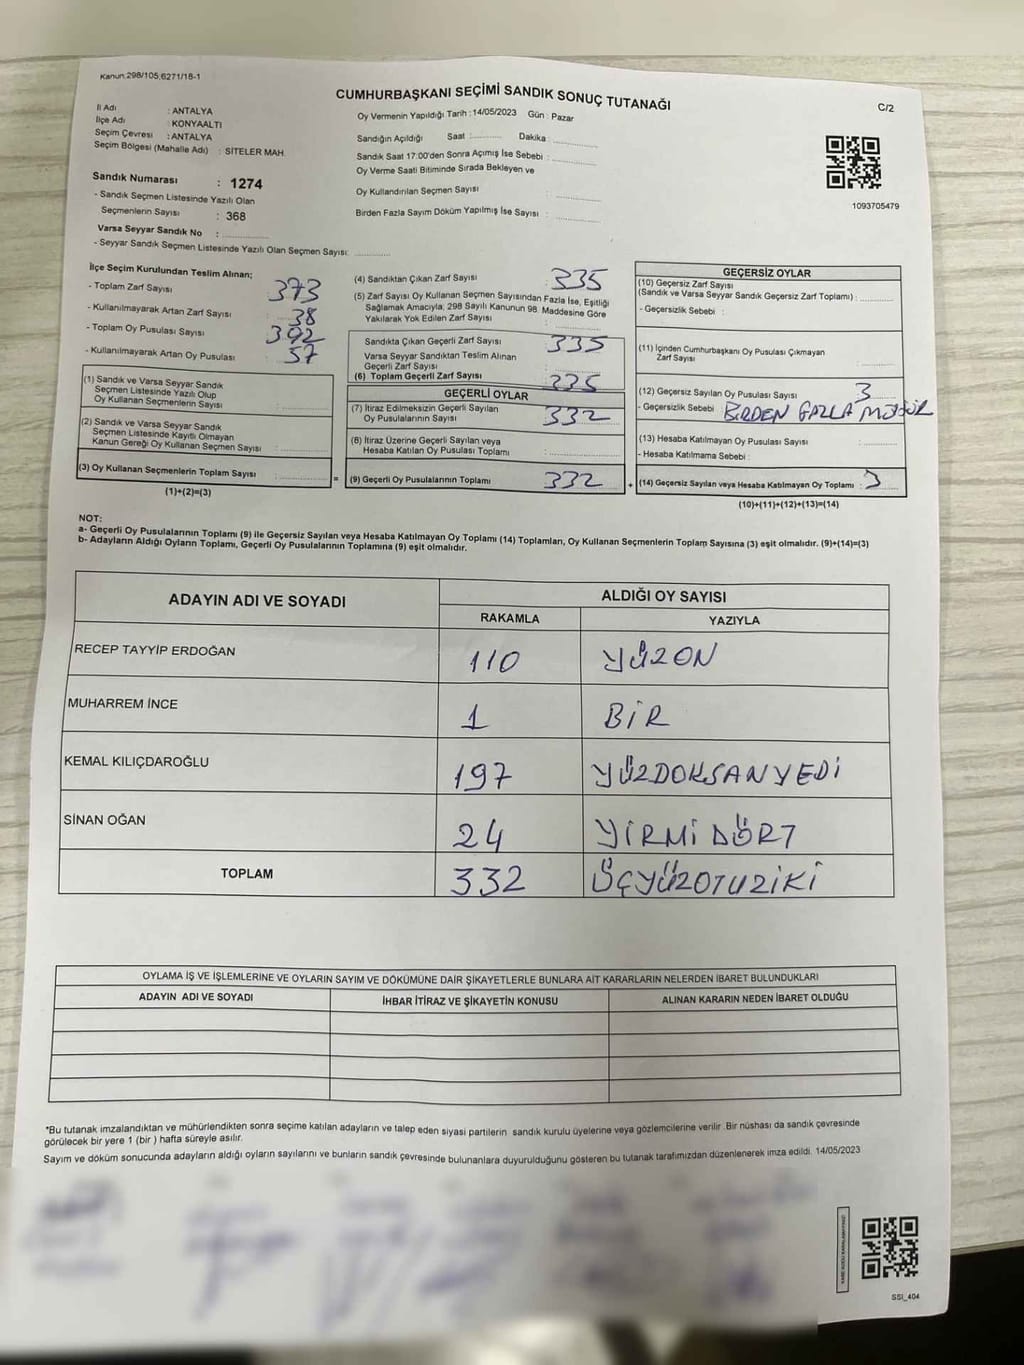 Kanun:298/105;6271/18-1
CUMHURBAŞKANI SEÇİMİ SANDIK SONUÇ TUTANAĞI
C/2
İl Adı : ANTALYA
İlçe Adı : KONYAALTI
Seçim Çevresi : ANTALYA
Seçim Bölgesi (Mahalle Adı) : SİTELER MAH.
Oy Vermenin Yapıldığı Tarih : 14/05/2023 Gün : Pazar
Sandığın Açıldığı Saat : Dakika :
Sandık Saat 17:00'den Sonra Açımış İse Sebebi :
Oy Verme Saati Bitiminde Sırada Bekleyen ve
Oy Kullandırılan Seçmen Sayısı :
Birden Fazla Sayım Döküm Yapılmış İse Sayısı :
1093705479
Sandık Numarası : 1274
- Sandık Seçmen Listesinde Yazılı Olan
Seçmenlerin Sayısı : 368
Varsa Seyyar Sandık No :
- Seyyar Sandık Seçmen Listesinde Yazılı Olan Seçmen Sayısı:
İlçe Seçim Kurulundan Teslim Alınan;
- Toplam Zarf Sayısı : 373
- Kullanılmayarak Artan Zarf Sayısı : 38
- Toplam Oy Pusulası Sayısı : 392
- Kullanılmayarak Artan Oy Pusulası : 57
(1) Sandık ve Varsa Seyyar Sandık
Seçmen Listesinde Yazılı Olup
Oy Kullanan Seçmenlerin Sayısı :
(2) Sandık ve Varsa Seyyar Sandık
Seçmen Listesinde Kayıtlı Olmayan
Kanun Gereği Oy Kullanan Seçmen Sayısı :
(3) Oy Kullanan Seçmenlerin Toplam Sayısı :
(1)+(2)=(3)
=
(4) Sandıktan Çıkan Zarf Sayısı : 335
(5) Zarf Sayısı Oy Kullanan Seçmen Sayısından Fazla İse, Eşitliği
Sağlamak Amacıyla; 298 Sayılı Kanunun 98. Maddesine Göre
Yakılarak Yok Edilen Zarf Sayısı :
Sandıkta Çıkan Geçerli Zarf Sayısı : 335
Varsa Seyyar Sandıktan Teslim Alınan
Geçerli Zarf Sayısı :
(6) Toplam Geçerli Zarf Sayısı : 335
GEÇERLİ OYLAR
(7) İtiraz Edilmeksizin Geçerli Sayılan
Oy Pusulalarının Sayısı : 332
(8) İtiraz Üzerine Geçerli Sayılan veya
Hesaba Katılan Oy Pusulası Toplamı :
(9) Geçerli Oy Pusulalarının Toplamı : 332
+
GEÇERSİZ OYLAR
(10) Geçersiz Zarf Sayısı
(Sandık ve Varsa Seyyar Sandık Geçersiz Zarf Toplamı) :
- Geçersizlik Sebebi :
(11) İçinden Cumhurbaşkanı Oy Pusulası Çıkmayan
Zarf Sayısı :
(12) Geçersiz Sayılan Oy Pusulası Sayısı : 3
- Geçersizlik Sebebi : BİRDEN FAZLA MÜHÜR
(13) Hesaba Katılmayan Oy Pusulası Sayısı :
- Hesaba Katılmama Sebebi :
(14) Geçersiz Sayılan veya Hesaba Katılmayan Oy Toplamı : 3
(10)+(11)+(12)+(13)=(14)
NOT:
a- Geçerli Oy Pusulalarının Toplamı (9) ile Geçersiz Sayılan veya Hesaba Katılmayan Oy Toplamı (14) Toplamları, Oy Kullanan Seçmenlerin Toplam Sayısına (3) eşit olmalıdır. (9)+(14)=(3)
b- Adayların Aldığı Oyların Toplamı, Geçerli Oy Pusulalarının Toplamına (9) eşit olmalıdır.
ADAYIN ADI VE SOYADI ALDIĞI OY SAYISI
RAKAMLA YAZIYLA
RECEP TAYYİP ERDOĞAN 110 YÜZON
MUHARREM İNCE 1 BİR
KEMAL KILIÇDAROĞLU 197 YÜZDOKSANYEDİ
SİNAN OĞAN 24 YİRMİDÖRT
TOPLAM 332 ÜÇYÜZOTUZİKİ
OYLAMA İŞ VE İŞLEMLERİNE VE OYLARIN SAYIM VE DÖKÜMÜNE DAİR ŞİKAYETLERLE BUNLARA AİT KARARLARIN NELERDEN İBARET BULUNDUKLARI
ADAYIN ADI VE SOYADI İHBAR İTİRAZ VE ŞİKAYETİN KONUSU ALINAN KARARIN NEDEN İBARET OLDUĞU
*Bu tutanak imzalandıktan ve mühürlendikten sonra seçime katılan adayların ve talep eden siyasi partilerin sandık kurulu üyelerine veya gözlemcilerine verilir. Bir nüshası da sandık çevresinde
görülecek bir yere 1 (bir ) hafta süreyle asılır.
Sayım ve döküm sonucunda adayların aldığı oyların sayılarını ve bunların sandık çevresinde bulunanlara duyurulduğunu gösteren bu tutanak tarafımızdan düzenlenerek imza edildi. 14/05/2023
SSI_404